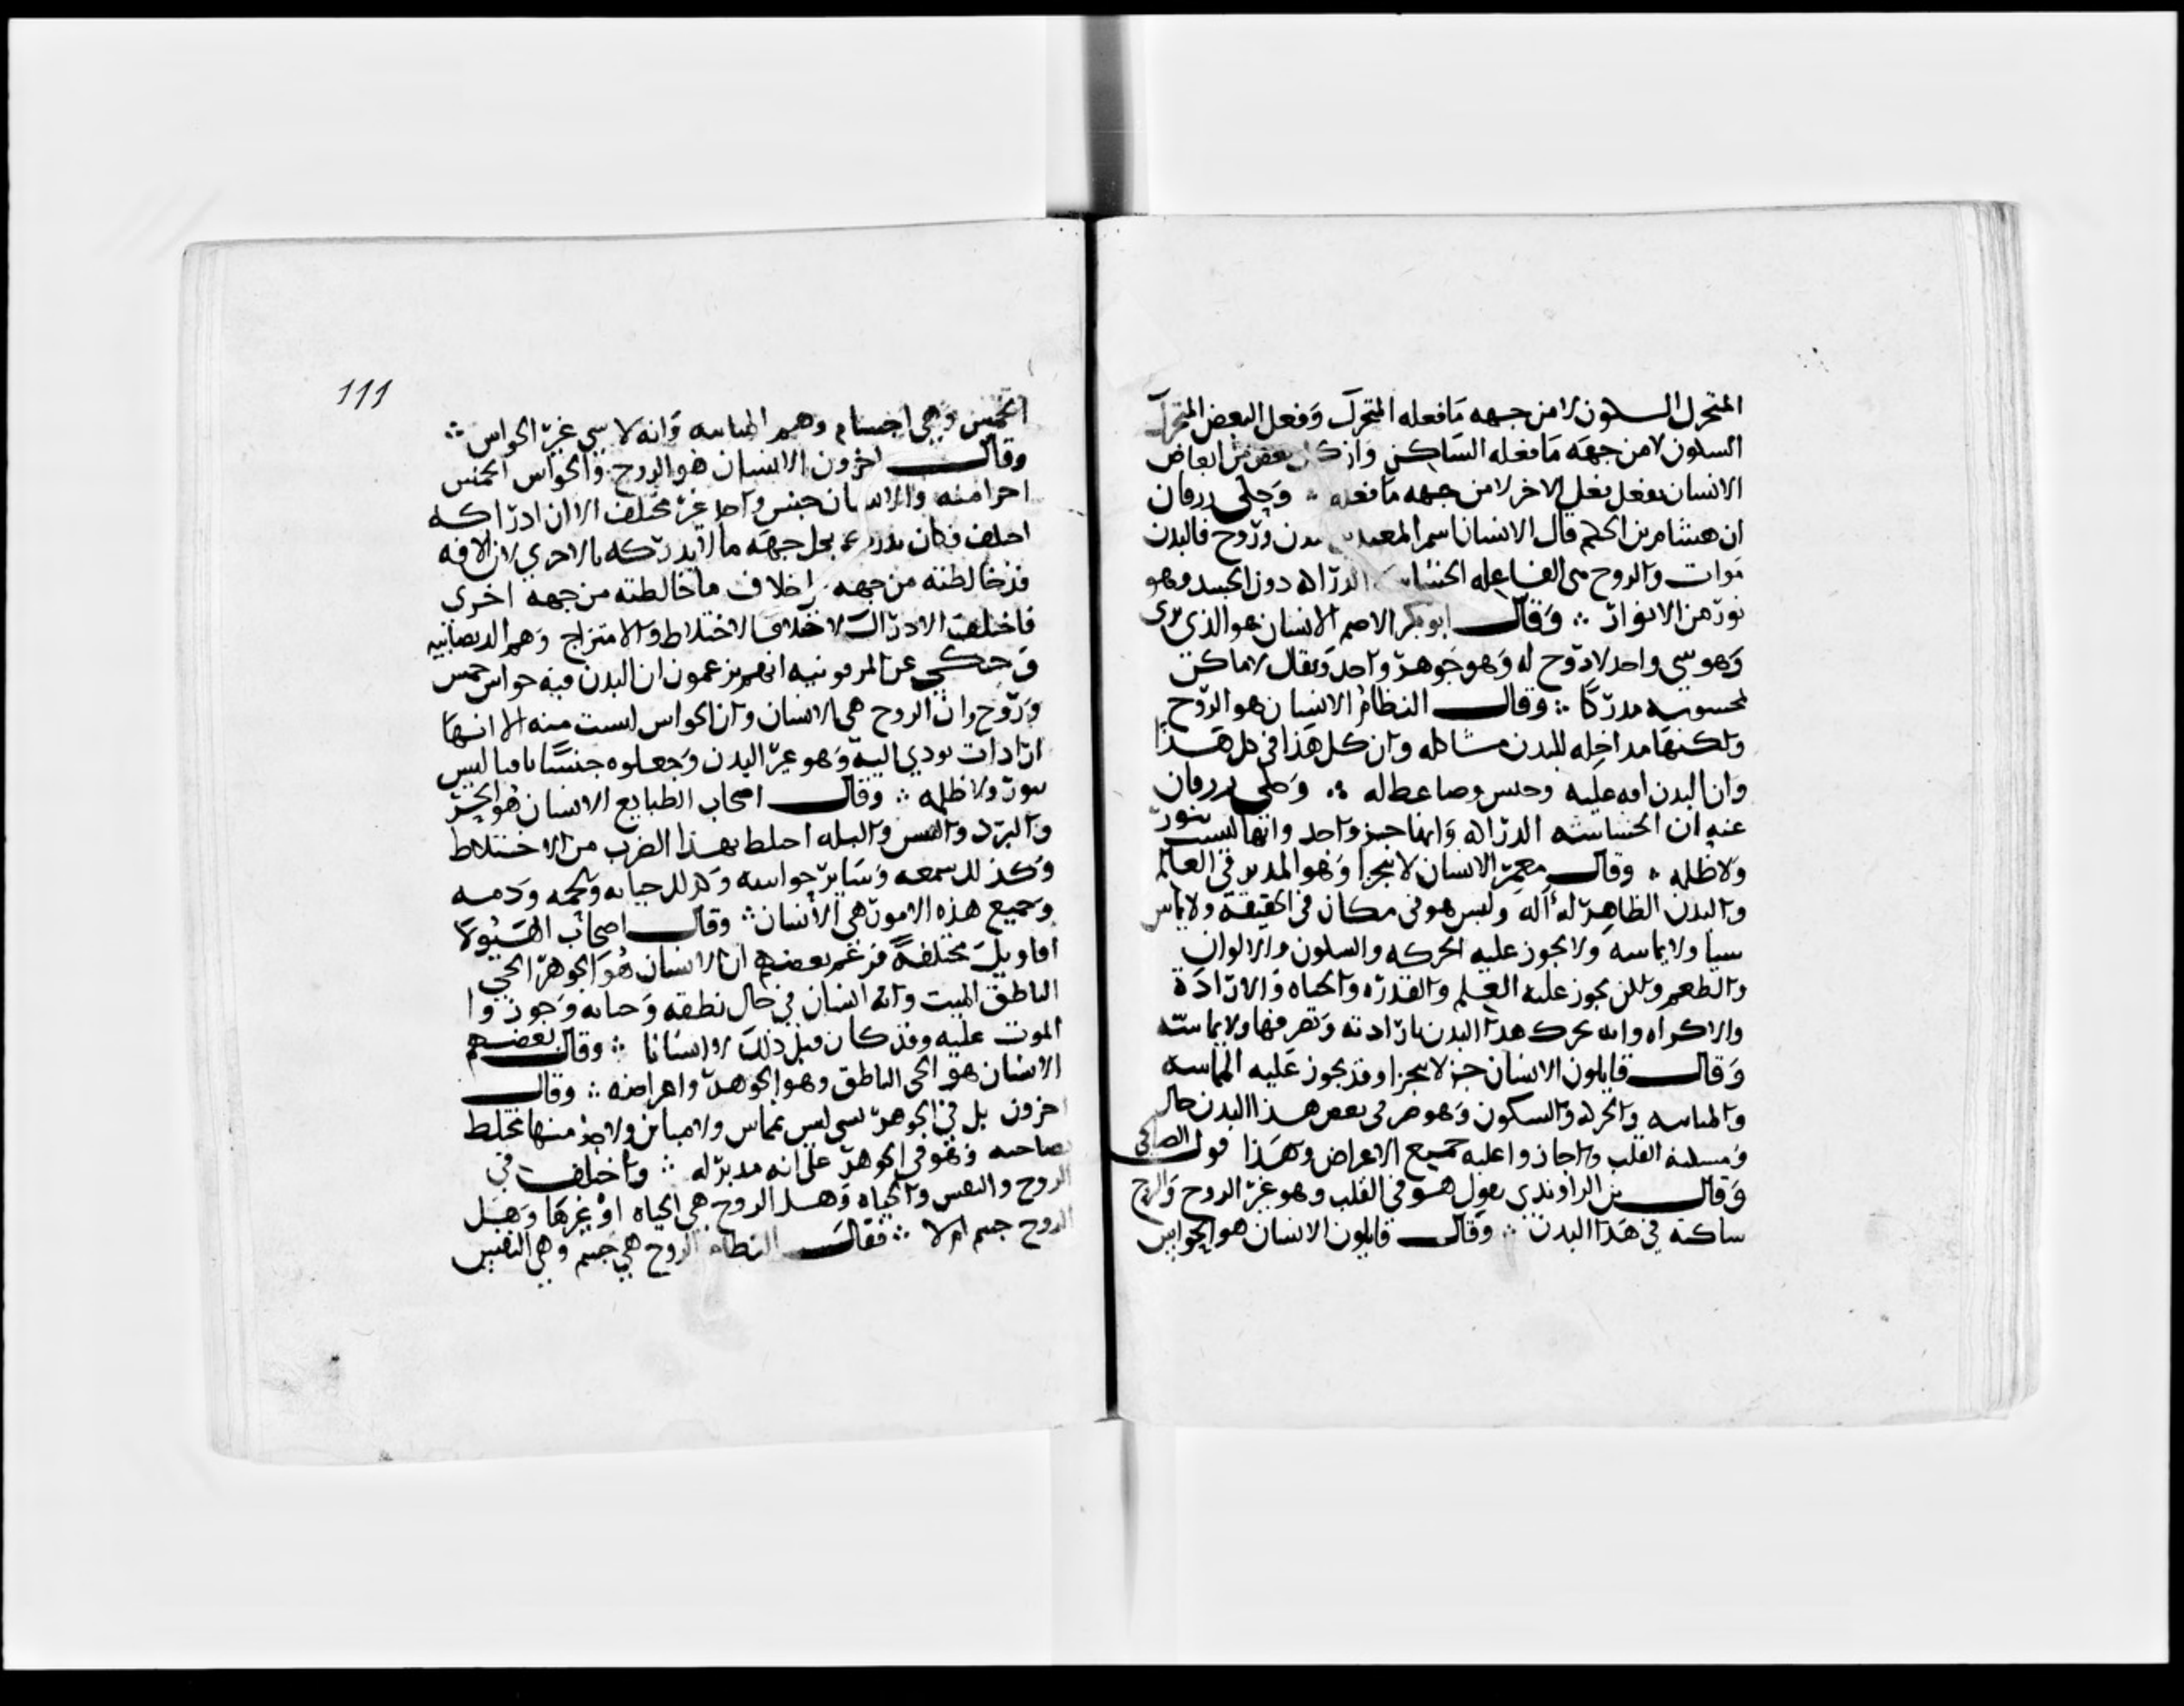 المتحرك السكون لا من جهه ما فعله المتحرك وفعل البعض المتحرك
السكون لا من جهه ما فعله الساكن وان كل بعض من ابعاض
الانسان يفعل فعل الاخر لا من جهه ما فعله ؞ وحكى زرقان
ان هشام بن الحكم قال الانسان اسم لمعنيين بدن وروح فالبدن
موات والروح هي الفاعله الحساسه الدراكه دون الجسد وهو
نور من الانوار ؞ وقال ابو بكر الاصم الانسان هو الذي يرى
وهو شي واحد لا روح له وهو جوهر واحد ونفى الا ما كان
محسوسا مدركا ؞ وقال النظام الانسان هو الروح
ولكنها مداخله للبدن مشاكله وان كل هذا في كل هذا
وان البدن افه عليه وحبس وضاغط له ؞ وحكى زرقان
عنه ان الحساسه الدراكه وانها جزو واحد وانها ليست بنور
ولا ظلمه ؞ وقال معمر الانسان لا يتجزا وهو المدبر في العالم
والبدن الظاهر له اله وليس هو في مكان في الحقيقه ولا يماس
شيا ولا يماسه ولا يجوز عليه الحركه والسكون والالوان
والطعم ولكن يجوز عليه العلم والقدره والحياه والاراده
والاكراه وانه يحرك هذا البدن بارادته ويصرفها ولا يماسه
وقال قايلون الانسان جزو لا يتجزا وقد يجوز عليه المماسه
والمباينه والحركه والسكون وهو جزو في بعض هذا البدن حال
ومسكنه القلب واجازوا عليه جميع الاعراض وهذا قول الصالحي
وقال بن الراوندي يقول هو في القلب وهو غير الروح والروح
ساكنه في هذا البدن ؞ وقال قايلون الانسان هو الحواس
111
الخمس وهي اجسام وهم المنانيه وانه لا شي غير الحواس ؞
وقال اخرون الانسان هو الروح والحواس الخمس
اجزا منه والانسان جنس واحد غير مختلف الا ان ادراكه
اختلف فكان يدرك بكل جهه ما لا يدركه بالاخري لان الافه
قد خالطته من جهه خلاف ما خالطته من جهه اخرى
فاختلف الادراك لاختلاف الاختلاط والامتزاج وهم الديصانيه
وحكي عن المرقونيه انهم يزعمون ان البدن فيه حواس خمس
وروح وان الروح هي الانسان وان الحواس ليست منه الا انها
ارادات تودي اليه وهو غير البدن وجعلوه جنسا ثالثا ليس
بنور ولا ظلمه ؞ وقال اصحاب الطبايع الانسان هو الحر
والبرد واليبس والبله اختلط بهذا الضرب من الاختلاط
وكذلك سمعه وساير حواسه وكذلك حياته ولحمه ودمه
وجميع هذه الامور هي الانسان ؞ وقال اصحاب الهيولا
اقاويل مختلفه فزعم بعضهم ان الانسان هو الجوهر الحي
الناطق الميت وانه انسان في حال نطقه وحياته وجوزوا
الموت عليه وقد كان قبل ذلك لا انسانا ؞ وقال بعضهم
الانسان هو الحي الناطق وهو الجوهر واعراضه ؞ وقال
اخرون بل في الجوهر شي ليس بمماس ولا مباين ولا منها مختلط
بصاحبه وهو في الجوهر على انه مدبر له ؞ واختلف في
الروح والنفس والحياه وهل الروح هي الحياه او غيرها وهل
الروح جسم ام لا ؞ فقال النظام الروح هي جسم وهي النفس